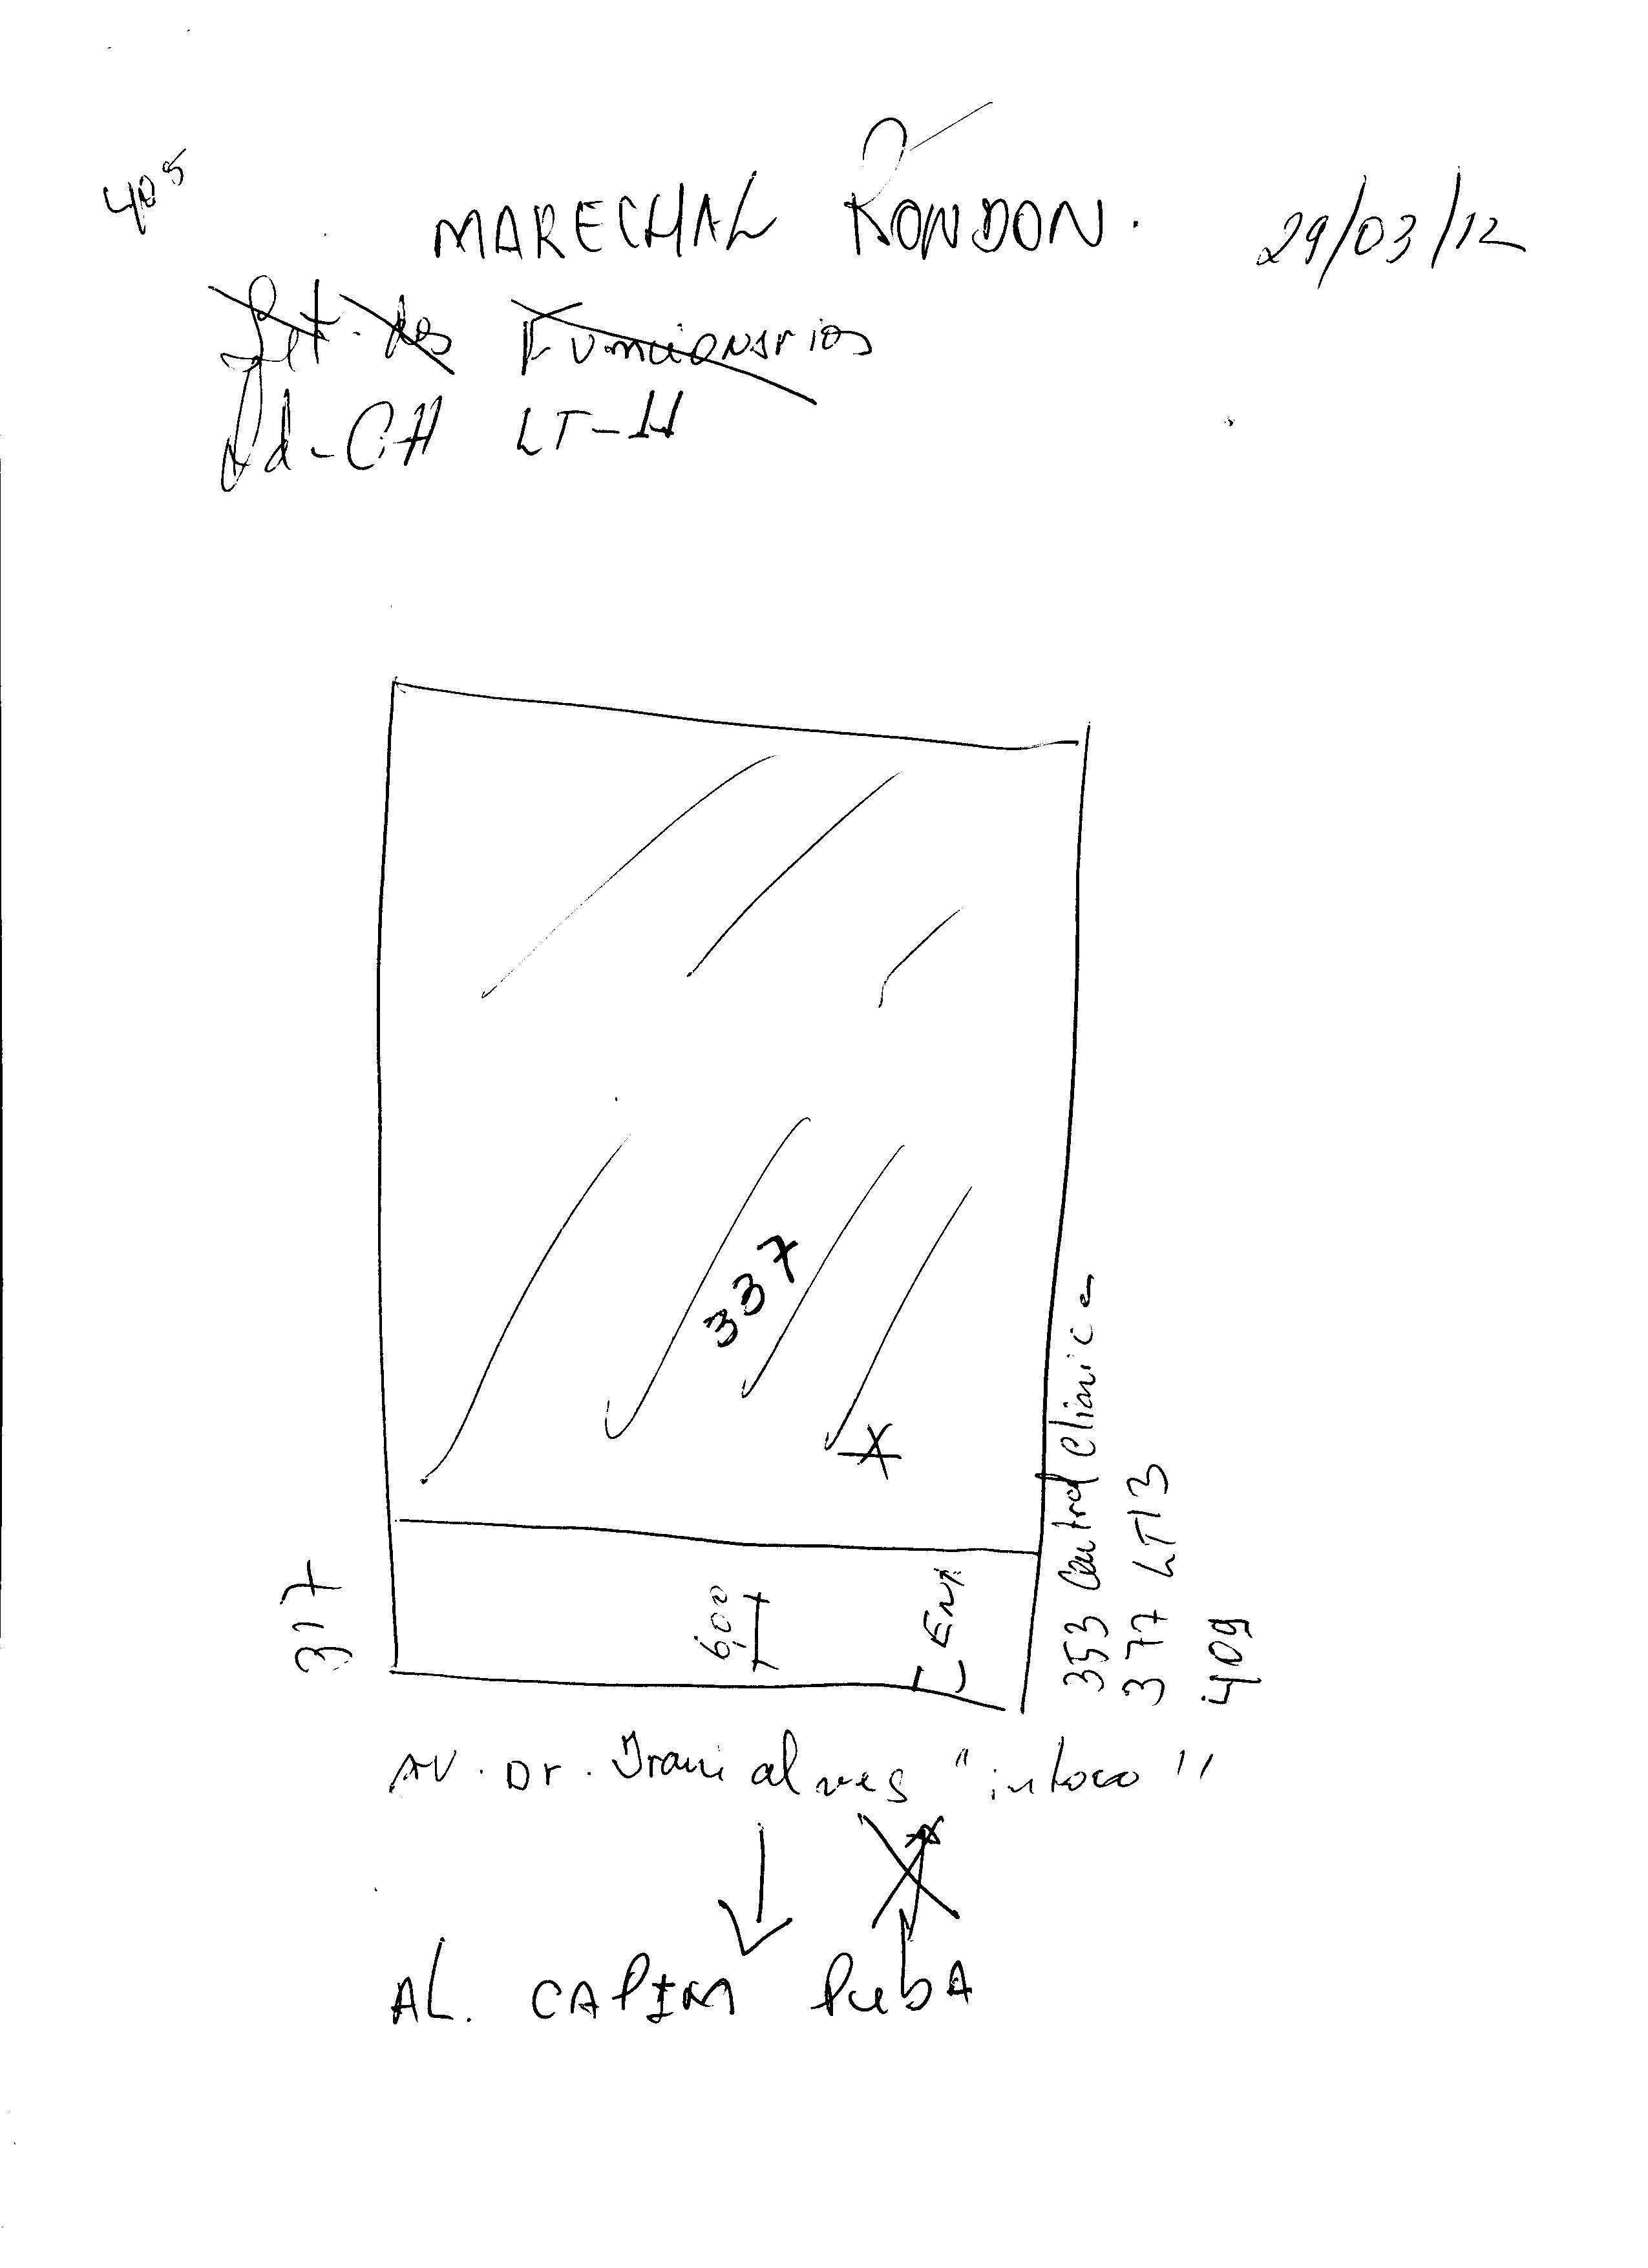 405
MARECHAL RONDON.
29/03/12
Set. dos Funcionarios
Qd-CH LT-11
337
317
6,00
Ent
353 Control Clinica
377 LT13
409
AV. Dr. Irani alves "in loco"
AL. CAPIM PubA